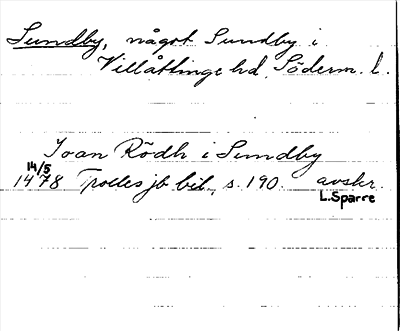 Sundby, något Sundby i
Villåttinge hd, Söderm. l.
Joan Rödh i Sundby
14/5
1478 Trolles jb bil., s. 190. avskr.
L.Sparre